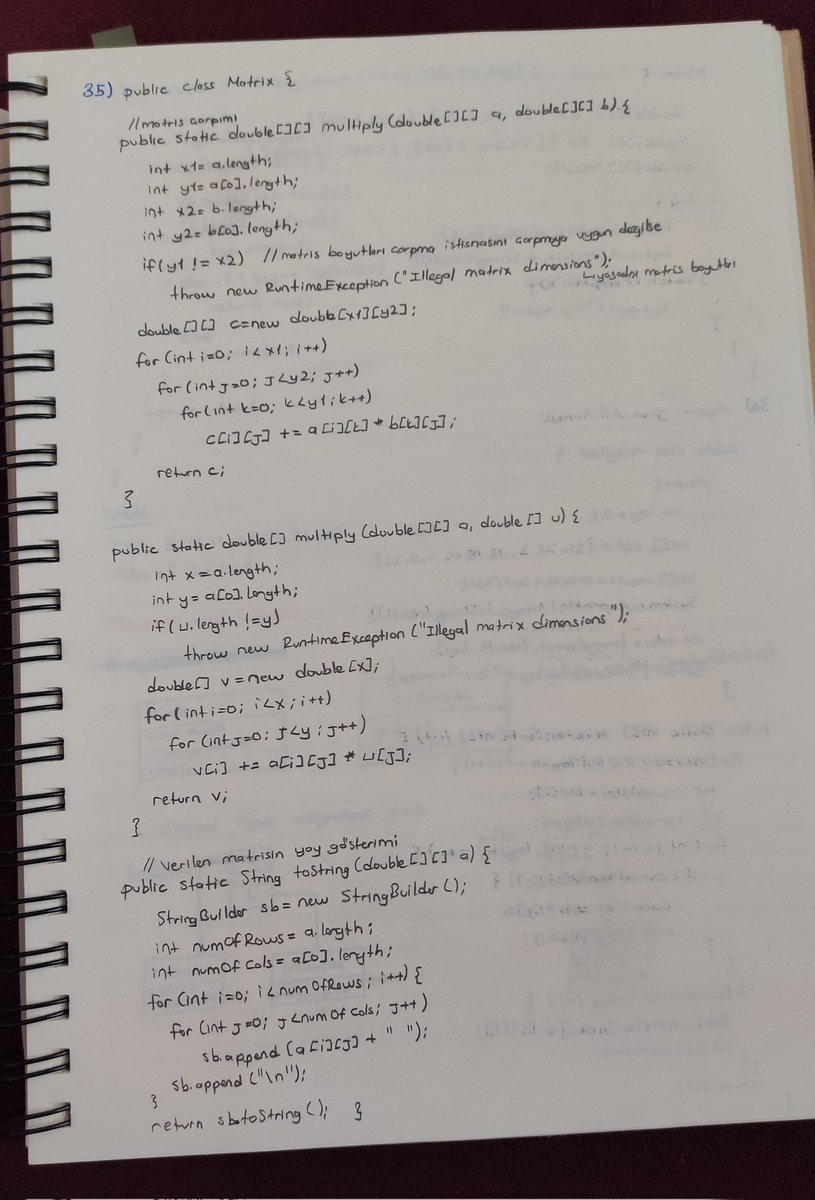 35) public class Matrix {
//matris çarpımı
public static double[][] multiply (double[][] a, double[][] b) {
int x1= a.length;
int y1= a[0].length;
int x2= b.length;
int y2= b[0].length;
if(y1 != x2) //matris boyutları çarpma istisnasını çarpmaya uygun değilse
throw new RuntimeException ("Illegal matrix dimensions");
↳yasadışı matris boyutları
double[][] c=new double[x1][y2];
for (int i=0; i<x1; i++)
for (int j=0; j<y2; j++)
for(int k=0; k<y1; k++)
c[i][j] += a[i][k] * b[k][j];
return c;
}
public static double[] multiply (double[][] a, double[] u) {
int x = a.length;
int y= a[0].length;
if(u.length !=y)
throw new RuntimeException ("Illegal matrix dimensions");
double[] v=new double[x];
for(int i=0; i<x; i++)
for (int j=0; j<y; j++)
v[i] += a[i][j] * u[j];
return v;
}
// Verilen matrisin yay gösterimi
public static String toString (double[][] a) {
StringBuilder sb= new StringBuilder ();
int numOfRows= a.length;
int numOfCols= a[0].length;
for (int i=0; i<numOfRows; i++) {
for (int j=0; j<numOfCols; j++)
sb.append (a[i][j] + " ");
sb.append ("\n");
}
return sb.toString(); }